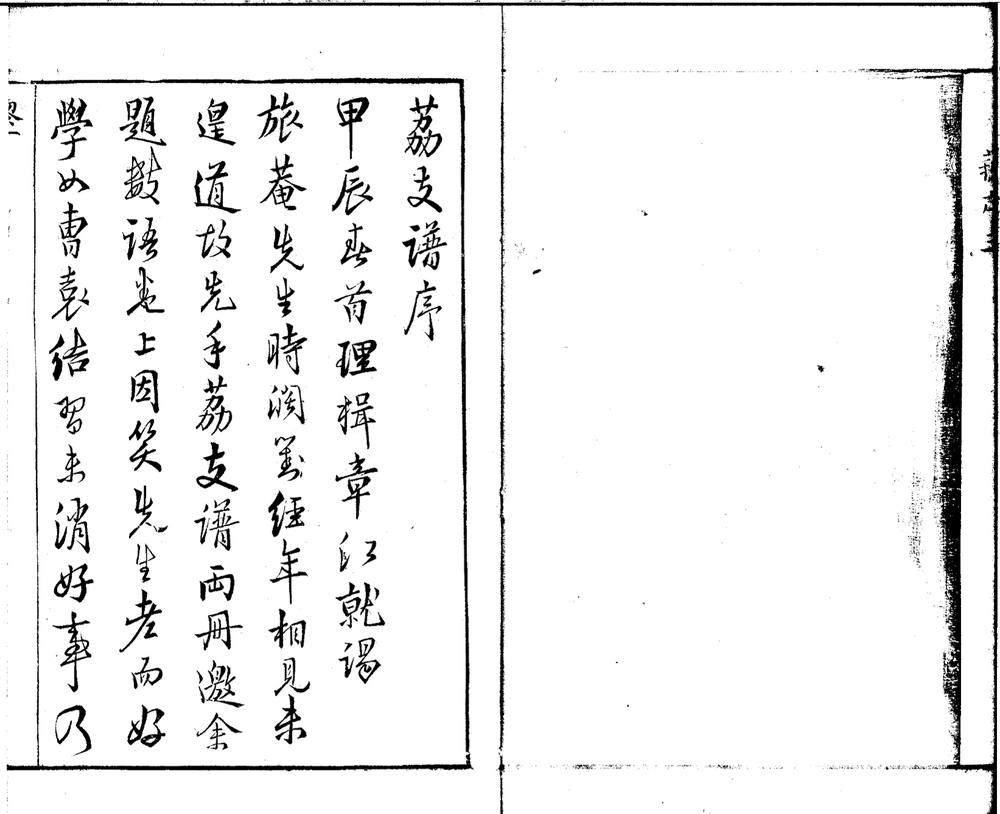 荔支譜序
甲辰春首理楫章江就謁
旅菴先生時濶對經年相見未
遑道故先手荔支譜兩冊邀余
題數語卷上因笑先生老而好
學如曹袁結習未消好事乃